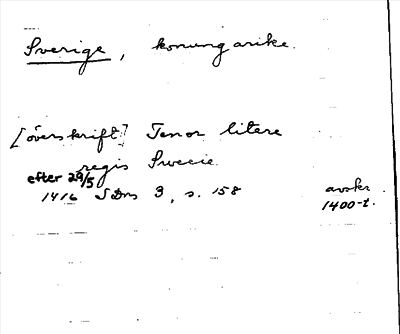 Sverige, konungarike.
[överskrift] Tenor litere
regis Swecie
efter 29/5
1416 SDns 3, s. 158
avskr.
1400-t.